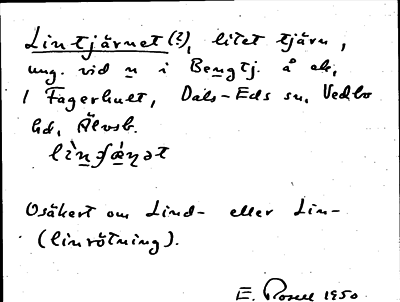 Lintjärnet (?), litet tjärn,
ung. vid n i Bengtj. å ek.
1 Fagerhult, Dals-Eds sn, Vedbo
hd, Älvsb.
Osäkert om Lind- eller Lin-
(linrötning).
E. 1950